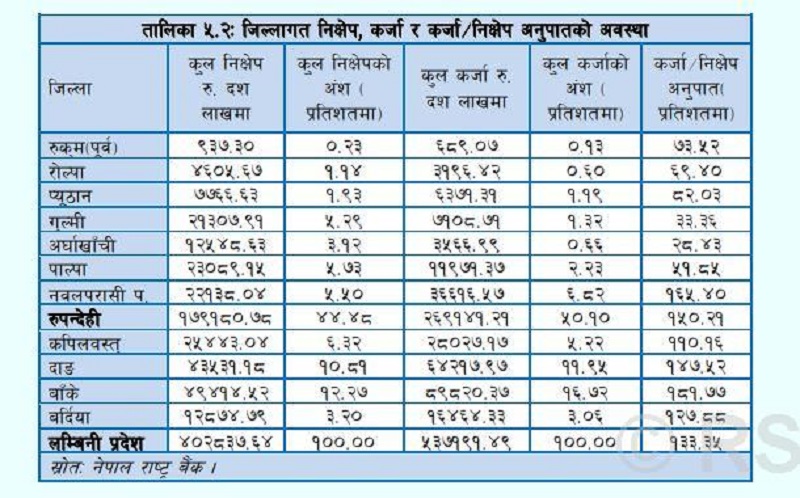 तालिका ५.२: जिल्लागत निक्षेप, कर्जा र कर्जा/निक्षेप अनुपातको अवस्था
जिल्ला कुल निक्षेप रु. दश लाखमा कुल निक्षेपको अंश (प्रतिशतमा) कुल कर्जा रु. दश लाखमा कुल कर्जाको अंश (प्रतिशतमा) कर्जा/निक्षेप अनुपात(प्रतिशतमा)
रुकुम(पूर्व) ९३७.३० ०.२३ ६८९.०७ ०.१३ ७३.५२
रोल्पा ४६०५.६७ १.१४ ३१९६.४२ ०.६० ६९.४०
प्यूठान ७७६६.६३ १.९३ ६३७१.३१ १.१९ ८२.०३
गुल्मी २१३०७.९१ ५.२९ ७१०८.७१ १.३२ ३३.३६
अर्घाखाँची १२५४८.६३ ३.१२ ३५६६.९९ ०.६६ २८.४३
पाल्पा २३०८९.१५ ५.७३ ११९७१.३७ २.२३ ५१.८५
नवलपरासी प. २२१३८.०४ ५.५० ३६६१६.५७ ६.८२ १६५.४०
रुपन्देही १७९१८०.७८ ४४.४८ २६९१४१.२१ ५०.१० १५०.२१
कपिलवस्तु २५४४३.०४ ६.३२ २८०२७.१७ ५.२२ ११०.१६
दाङ ४३५३१.१८ १०.८१ ६४२१७.९७ ११.९५ १४७.५२
बाँके ४९४१४.५२ १२.२७ ८९८२०.३७ १६.७२ १८१.७७
बर्दिया १२८७४.७९ ३.२० १६४६४.३३ ३.०६ १२७.८८
लुम्बिनी प्रदेश ४०२८३७.६४ १००.०० ५३७१९१.४९ १००.०० १३३.३५
स्रोतः नेपाल राष्ट्र बैंक ।
© RS